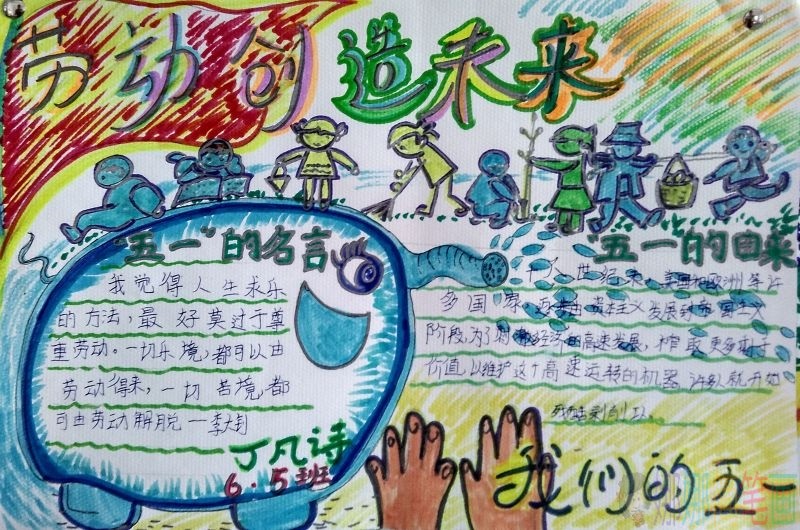 劳动创造未来
"五一"的名言
我觉得人生求乐
的方法，最好莫过于尊
重劳动。一切乐境，都可以由
劳动得来，一切苦境，都
可由劳动解脱 一李大钊
丁凡诗
6.5班
"五一的由来
十九世纪末，美国和欧洲等许
多国家，逐步由资本主义发展到帝国主义
阶段，为了刺激经济的高速发展，榨取更多剩余
价值，以维护这个高速运转的机器，
残酷剥削工人。
我们的五一